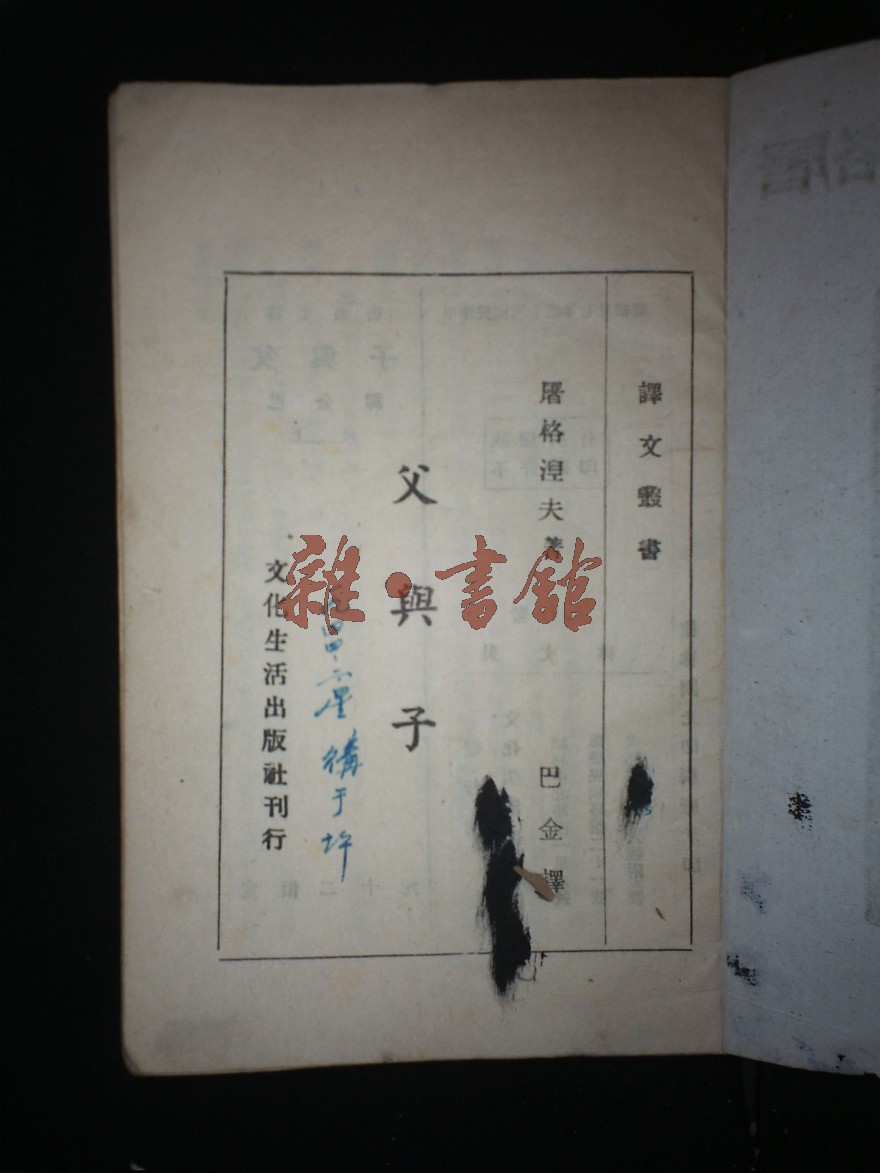 譯文叢書
屠格涅夫著
巴金譯
父與子
購于
文化生活出版社刊行
雜·書館